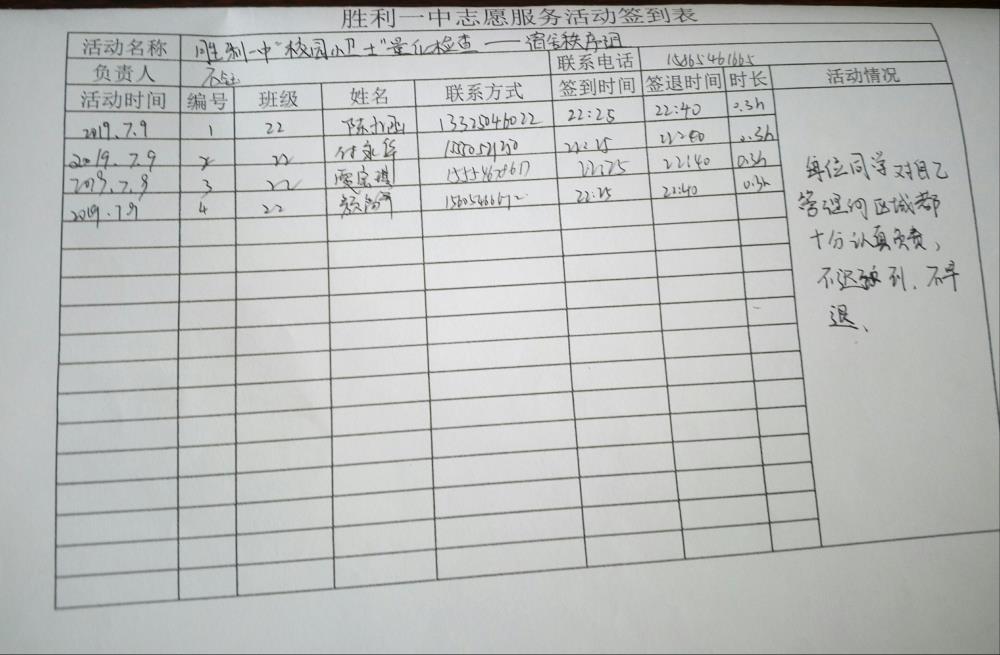 胜利一中志愿服务活动签到表
活动名称 胜利一中"校园小卫士"量化检查——宿舍秩序组
负责人 联系电话
活动时间 编号 班级 姓名 联系方式 签到时间 签退时间 时长 活动情况
2019.7.9 1 22 13325046022 22:25 22:40 0.3h
2019.7.9 2 22 22:25 22:40 0.3h
2019.7.9 3 22 22:25 22:40 0.3h
2019.7.9 4 22 22:25 22:40 0.3h
每位同学对自己
管理的区域都
十分认真负责、
不迟到、不早
退、